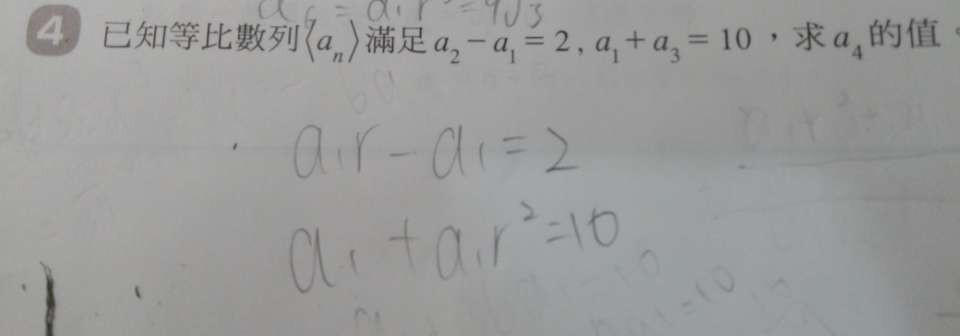 a₁r = 9√3
4 已知等比數列⟨aₙ⟩滿足 a₂－a₁＝2 , a₁＋a₃＝10 ，求 a₄ 的值。
a₁r－a₁＝2
a₁＋a₁r²＝10